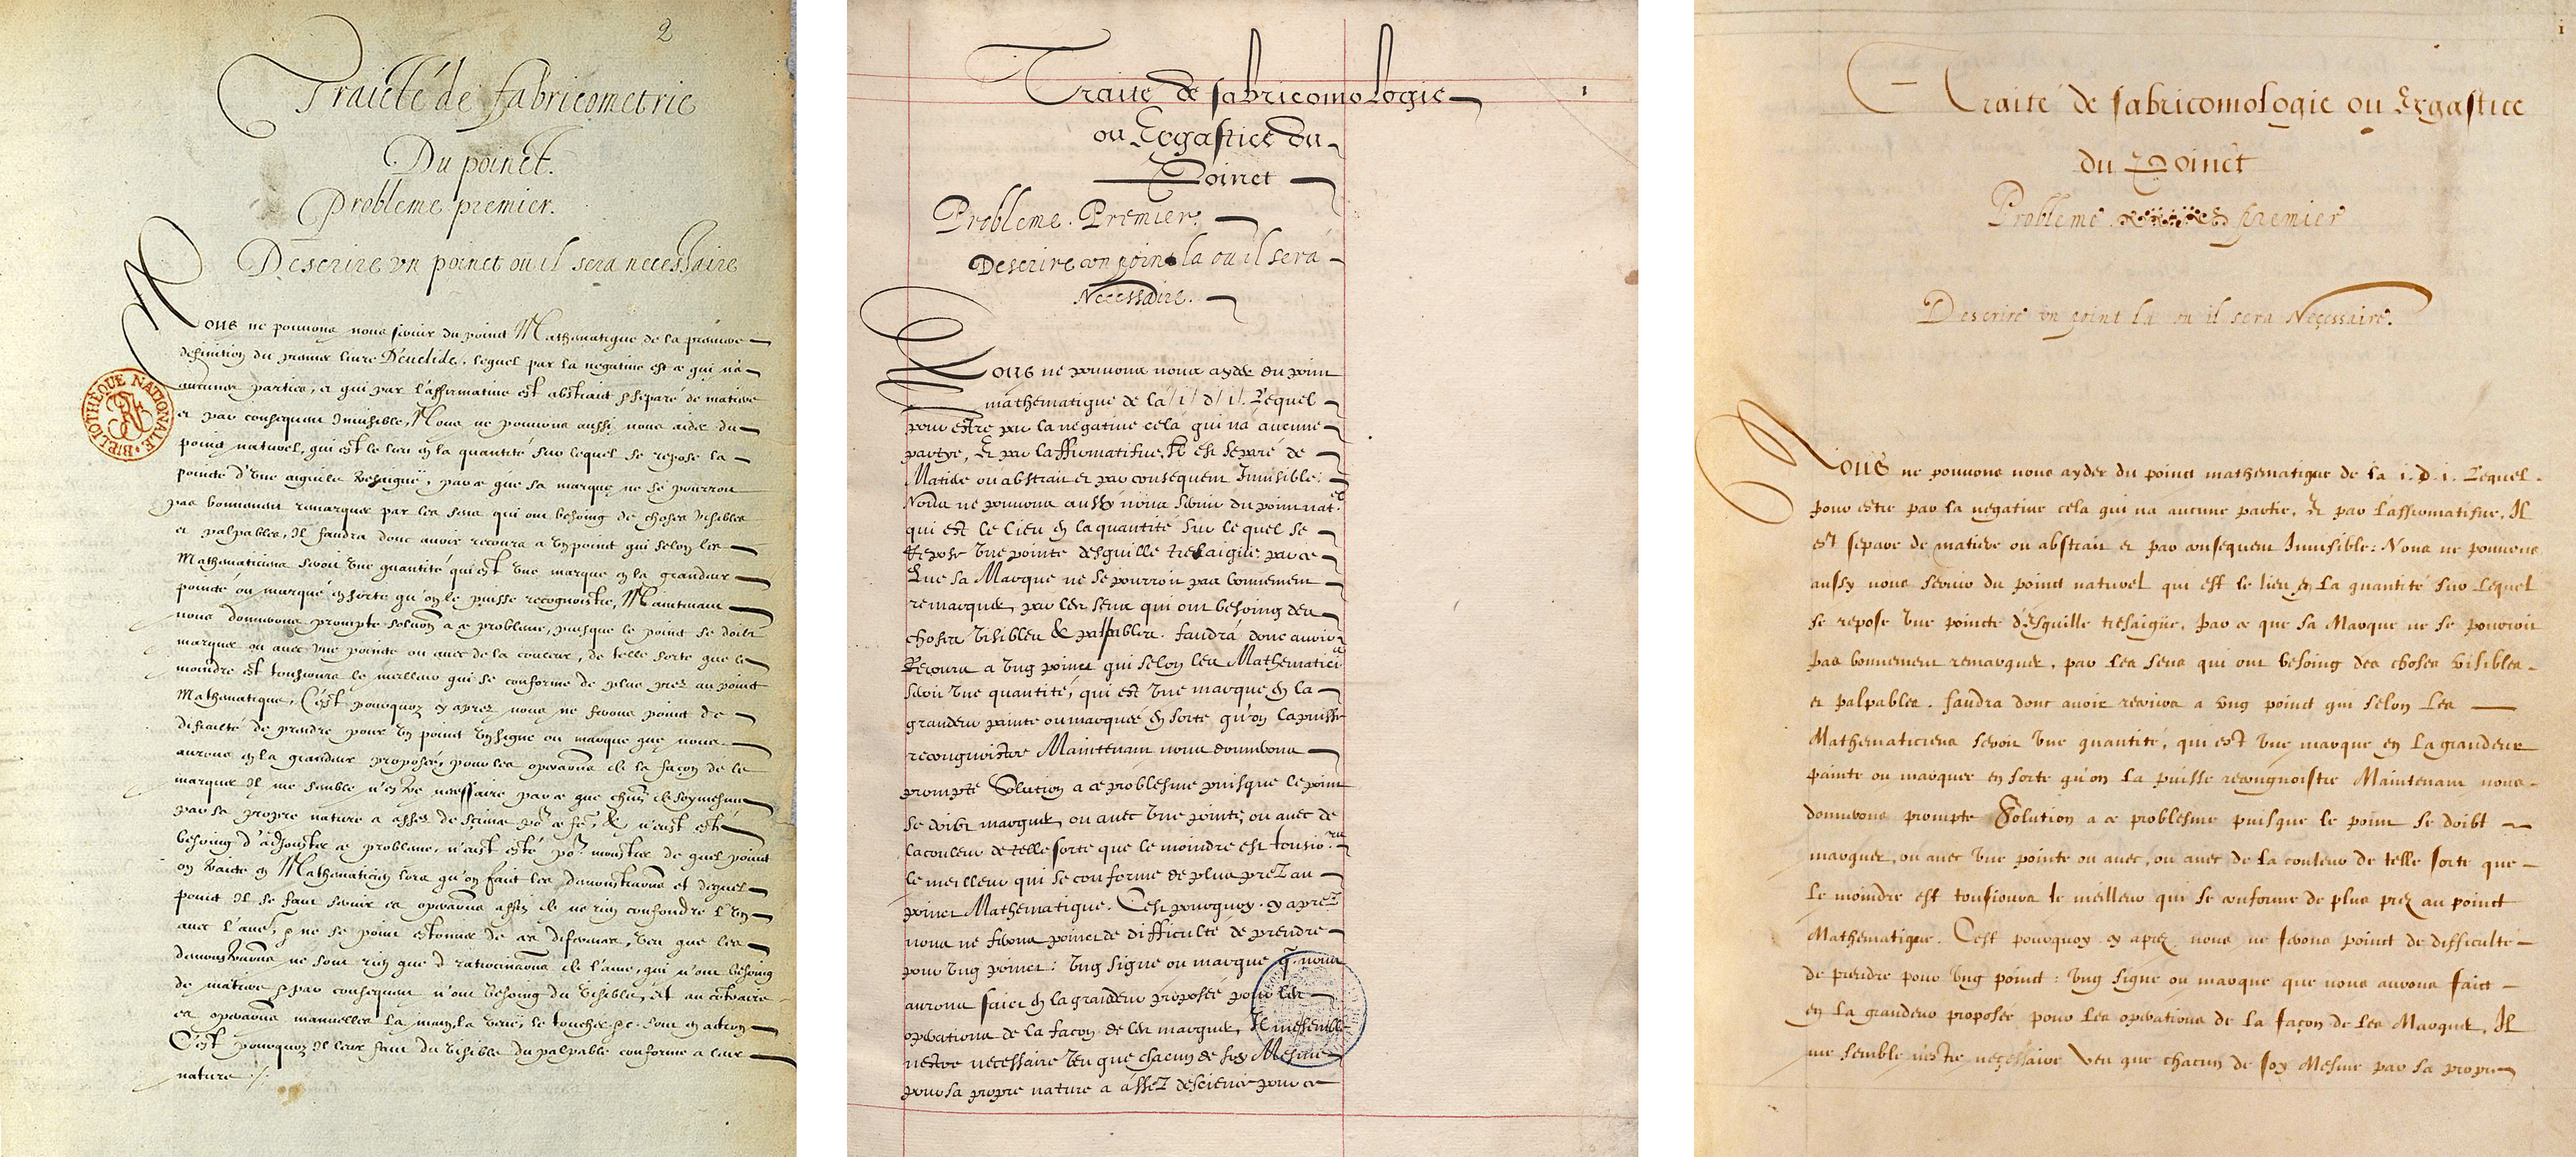 2
Traicté de fabricometrie
Du poinct.
Probleme premier.
Descrire vn poinct ou il sera necessaire
Nous ne pouuons nous seruir du poinct Mathematique de la premiere
definition du premier liure D'euclide, lequel par la negatiue est ce qui n'a
aucunes parties, et qui par l'affirmatiue est abstraict & separé de matiere
et par consequent Inuisible, Nous ne pouuons aussi nous aider du
poinct naturel, qui est le lieu en la quantité sur lequel se repose la
poincte d'vne aiguile besaiguë, parce que sa marque ne se pourroit
pas bonnement remarquer par les sens qui ont besoing de choses visibles
et palpables, Il faudra donc auoir recours a vn poinct qui selon les
Mathematiciens seroit vne quantité qui est vne marque en la grandeur
poincte ou marqué en sorte qu'on le puisse recognoistre, Maintenant
nous donnerons prompte solution a ce probleme, puisque le poinct se doibt
marquer ou auec vne poincte ou auec de la couleur, de telle sorte que le
moindre est tousiours le meilleur qui se conforme de plus prez au poinct
Mathematique, C'est pourquoy cy aprez nous ne ferons poinct de
difficulté de prendre pour vn poinct vn signe ou marque que nous
aurons en la grandeur proposée, pour les operaons de la façon de le
marquer Il me semble n'estre necessaire parce que chun de soymesme
par sa propre nature a assez de science po.r ce fe, & n'eust esté
besoing d'adiouster ce probleme, n'eust esté po.r monstrer de quel poinct
on traicte en Mathematicien lors qu'on faict les demonstraons et duquel
poinct Il se faut seruir es operaons affin de ne rien confondre l'vn
auec l'autre, & ne se point estonner de ces differences, veu que les
demonstraons ne sont rien que d ratiocinaons de l'ame, qui n'ont besoing
de matiere & par consequent n'ont besoing du visible, Et au contraire
es operaons manuelles la main, la veuë, le toucher &c. sont en action
C'est pourquoy Il leur faut du visible du palpable conforme a leur
nature ./.
BIBLIOTHÈQUE NATIONALE
RF
1
Traite de fabricomologie
ou Ergastice du
Poinct
Probleme. Premier.
Descrire vn point la ou il sera
Necessaire.
Nous ne pouuons nous ayder du point
mathematique de la / i / d / i /. Lequel
pour estre par la negatiue cela qui na aucune
partye, Et par laffirmatifue, Il est separé de
Matiere ou abstrait et par consequent Inuisible:
Nous ne pouuons aussy nous seruir du point nat.el
qui est le lieu en la quantité sur lequel se
Repose vne pointe desguille tresaigüe par ce
Que sa Marque ne se pourroit pas bonnement
remarquer, par les sens qui ont besoing des
choses visibles & palpables. faudra donc auoir
Recours a vng poinct qui selon les Mathematici
seroit vne quantité, qui est vne marque en la
grandeur pointe ou marquée en sorte qu'on la puisse
recongnoistre Maintenant nous donnerons
prompte Solution a ce problesme puisque le point
se doibt marquer, ou auec vne pointe, ou auec de
la couleur de telle sorte que le moindre est tousio.rs
le meilleur qui se conforme de plus prez au
poinct Mathematique. C'est pourquoy. cy aprez
nous ne ferons poinct de difficulté de prendre
pour vng poinct: vng signe ou marque q. nous
aurons faict en la grandeur proposée pour les
operations de la façon de les marquer, Il me semble
nestre necessaire veu que chacun de soy Mesme
pour sa propre nature a assez de science pour ce
1
Traité de fabricomologie ou Ergastice
du Poinct
Probleme premier
Descrire vn point la ou il sera Neçessaire.
Nous ne pouuons nous ayder du poinct mathematique de la i. D. i. Lequel
pour estre par la negatiue cela qui na aucune partie, Et par laffirmatifue, Il
est separe de matiere ou abstrait et par consequent Inuisible: Nous ne pouuons
aussy nous seruir du poinct naturel qui est le lieu en La quantité sur Lequel
se repose vne poincte d'esguille tresaigüe, par ce que sa Marque ne se pourroit
pas bonnement remarquer, par les sens qui ont besoing des choses visibles
et palpables. faudra donc auoir recours a vng poinct qui selon Les
Mathematiciens seroit vne quantité, qui est vne marque en La grandeur
painte ou marquer en sorte qu'on la puisse recongnoistre Maintenant nous
donnerons prompte Solution a ce problesme puisque le point se doibt
marquer, ou auec vne pointe ou auec, ou auec de la couleur de telle sorte que
Le moindre est tousiours le meilleur qui se conforme de plus prez au poinct
Mathematique. C'est pourquoy cy aprez nous ne ferons poinct de difficulte
de prendre pour vng poinct: vng signe ou marque que nous aurons faict
en La grandeur proposée pour Les operations de la façon de Les Marquer, Il
me semble nestre neçessaire veu que chacun de soy Mesme par sa propre